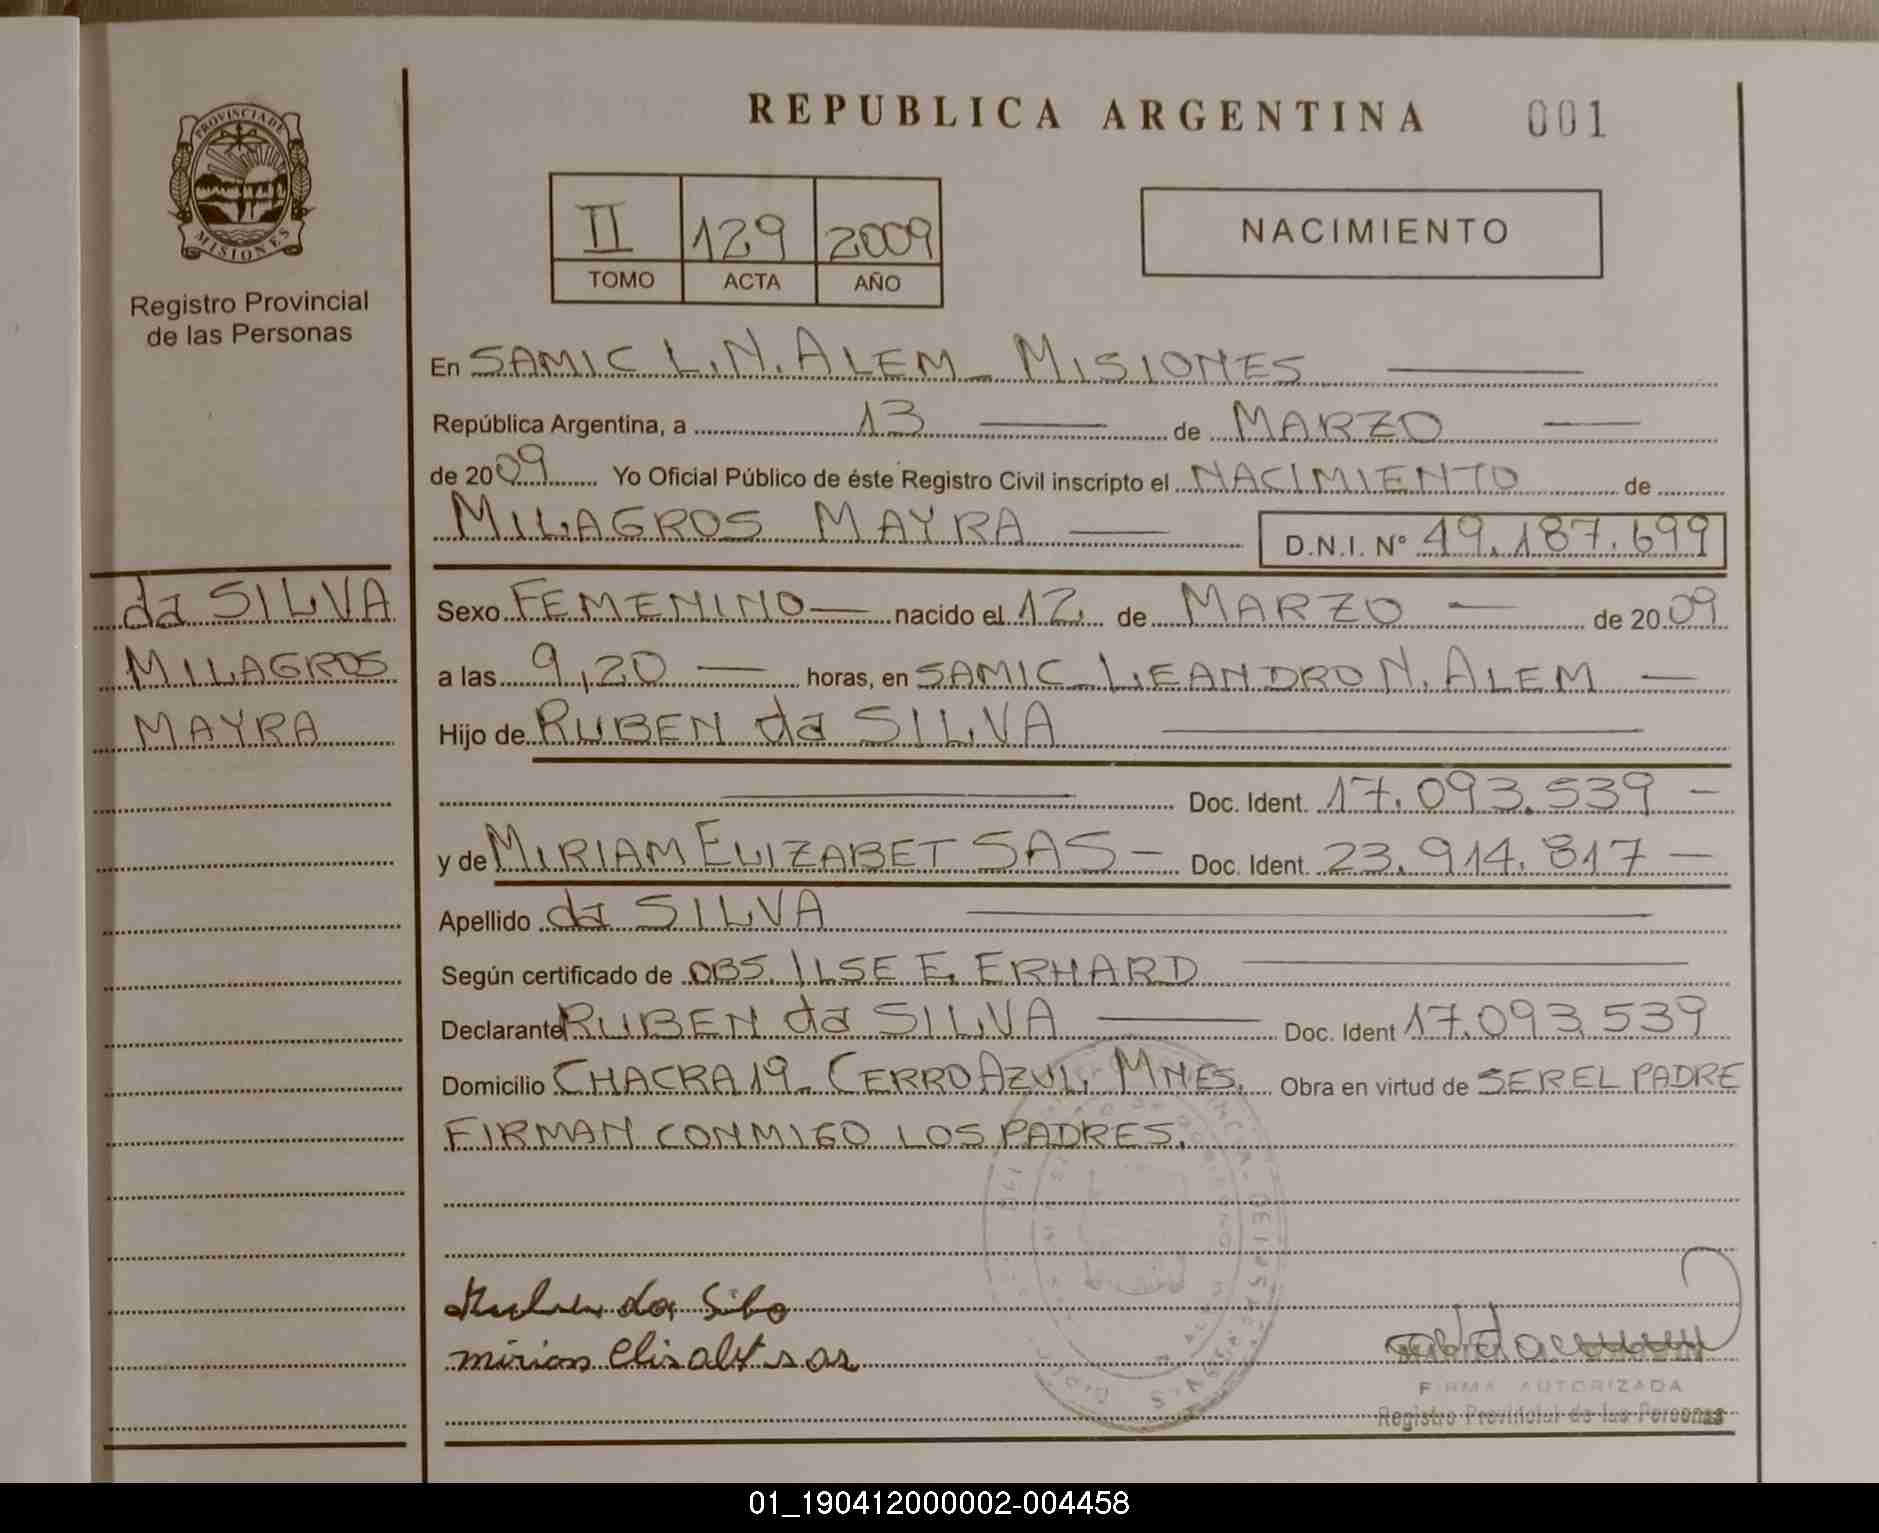 REPUBLICA ARGENTINA 001
PROVINCIA DE MISIONES
Registro Provincial
de las Personas
II 129 2009
TOMO ACTA AÑO
NACIMIENTO
En SAMIC L.N. ALEM - MISIONES
República Argentina, a 13 de MARZO
de 2009 Yo Oficial Público de éste Registro Civil inscripto el NACIMIENTO de
MILAGROS MAYRA D.N.I. Nº 49.187.699
da SILVA
MILAGROS
MAYRA
Sexo FEMENINO nacido el 12 de MARZO de 2009
a las 9,20 horas, en SAMIC - LEANDRO N. ALEM
Hijo de RUBEN da SILVA
Doc. Ident. 17.093.539
y de MIRIAM ELIZABET SAS Doc. Ident. 23.914.817
Apellido da SILVA
Según certificado de OBS. ILSE E. ERHARD
Declarante RUBEN da SILVA Doc. Ident 17.093.539
Domicilio CHACRA 19 - CERRO AZUL, MNES. Obra en virtud de SER EL PADRE
FIRMAN CONMIGO LOS PADRES.
Ruben da Silva
mirian elisabet sas
FIRMA AUTORIZADA
Registro Provincial de las Personas
01_190412000002-004458